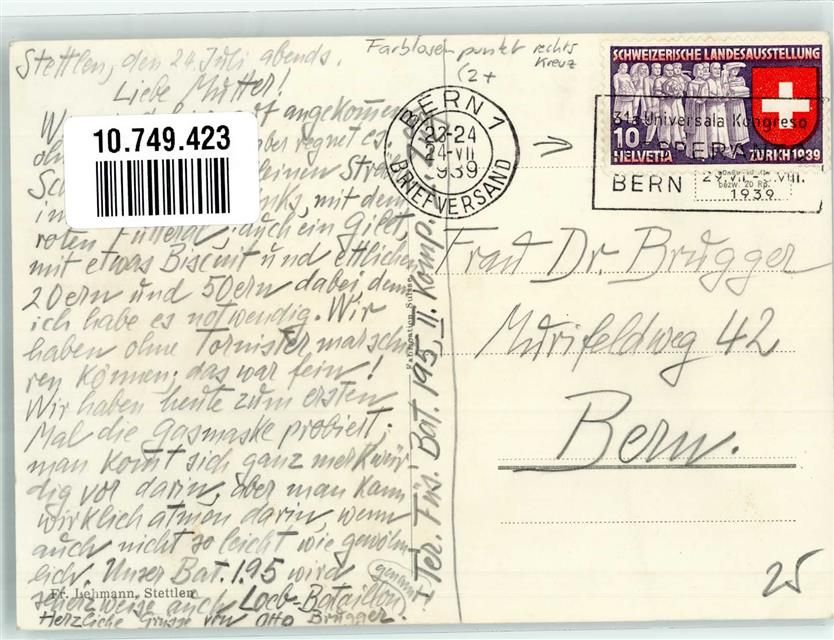 Stettlen, den 24. Juli abends.
Liebe Mutter!
angekommen
aber regnet es
kleinen
mit dem
roten Futteral, auch ein Gilet,
mit etwas Biscuit und etlichen
20ern und 50ern dabei, denn
ich habe es notwendig. Wir
haben ohne Tornister marschie
ren können; das war fein!
Wir haben heute zum ersten
Mal die Gasmaske probiert;
man komt sich ganz merkwür
dig vor darin, aber man kann
wirklich atmen darin, wenn
auch nicht so leicht wie gewöhn-
lich. Unser Bat. 195 wird
scherzweise auch Loeb-Bataillon genannt
Herzliche Grüsse von Otto Brugger.
Fr. Lehmann, Stettlen
10.749.423
Farblosen punkt rechts
Kreuz
(2+
BERN 1
23-24
24·VII
1939
BRIEFVERSAND
SCHWEIZERISCHE LANDESAUSSTELLUNG
10
HELVETIA ZÜRICH 1939
31a Universala Kongreso
ESPERANTO
BERN 29.VII.-5.VIII.
1939
bezw. 20 Rp.
Fabrication Suisse
Ter. Füs. Bat. 195, II. Komp.
Frau Dr. Brugger
Murifeldweg 42
Bern.
25